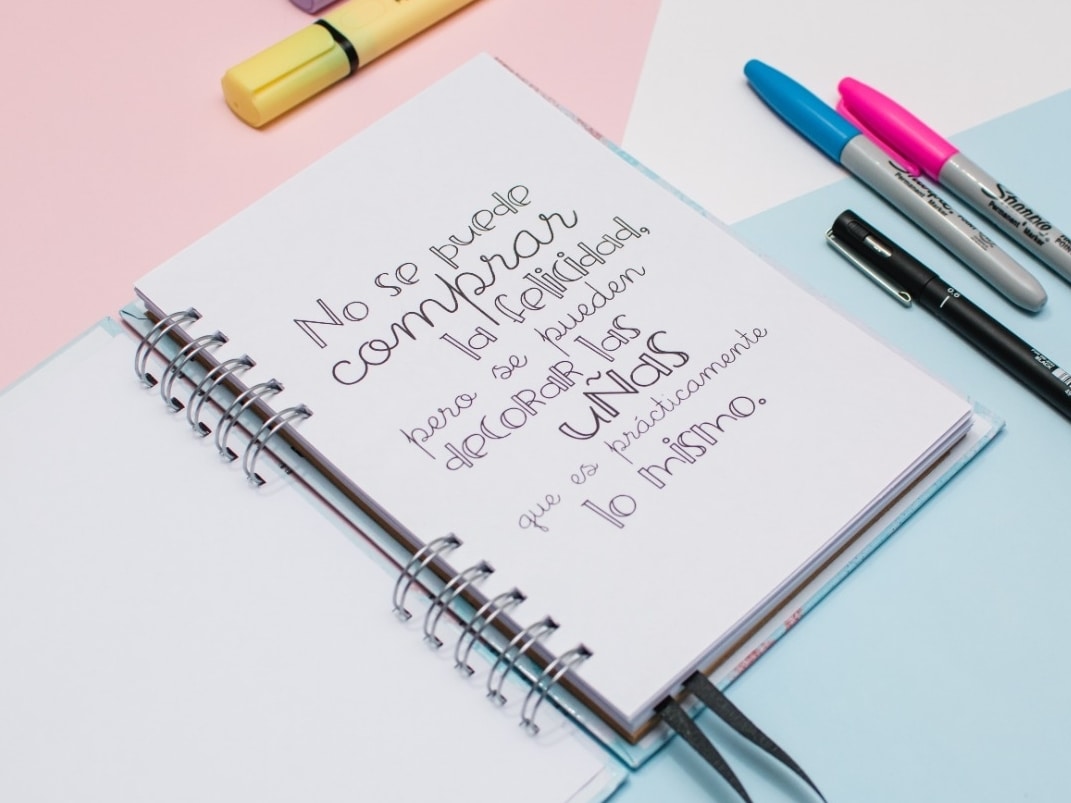 No se puede
comprar
la felicidad,
pero se pueden
decorar las
uñas
que es prácticamente
lo mismo.
Sharpie
Permanent Marker
Sharpie
Permanent Marker
0.8